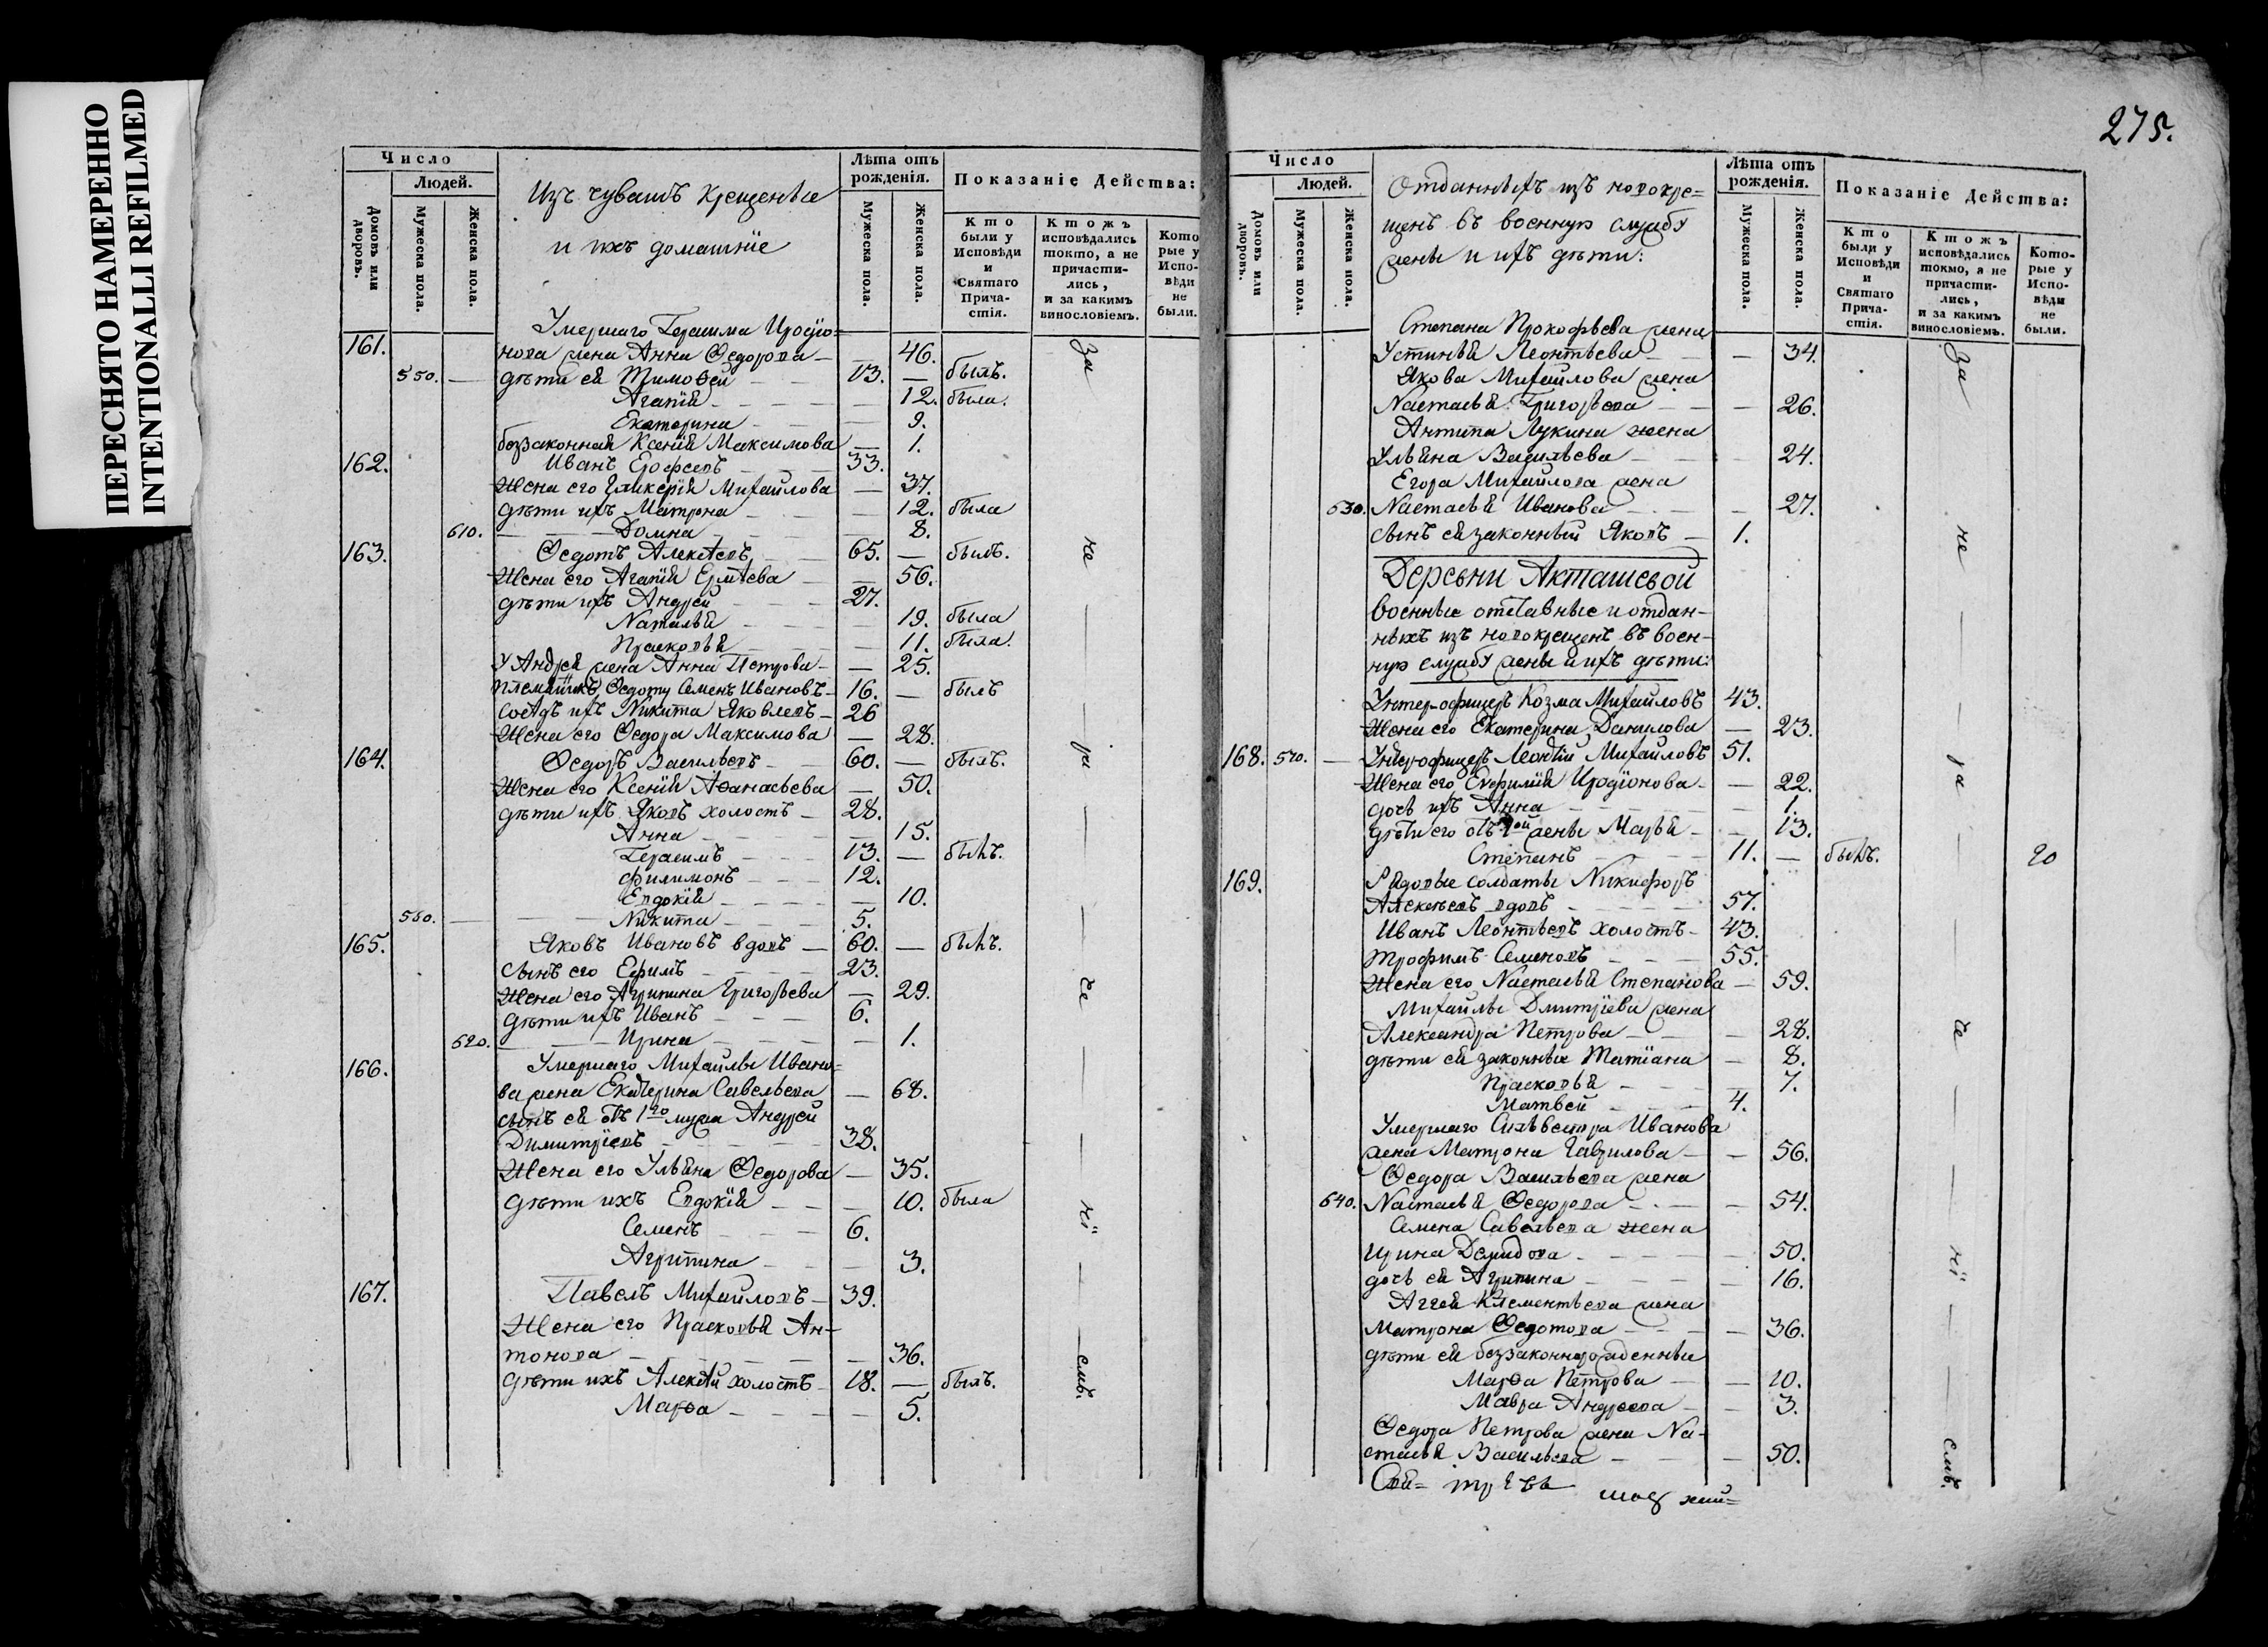 ПЕРЕСНЯТО НАМЕРЕННО
INTENTIONALLI REFILMED
Число
Людей.
Домовъ или дворовъ.
Мужеска пола.
Женска пола.
Изъ чувашъ крещеные
и ихъ домашніе
Лѣта отъ рожденія.
Мужеска пола.
Женска пола.
Показаніе Действа:
Кто были у Исповѣди и Святаго Прича-стія.
Ктожъ исповѣдались токмо, а не причасти-лись, и за какимъ винословіемъ.
Кото рые у Испо-вѣди не были.
Умершаго Герасима Иродіо=
161. нова жена Анна Ѳедорова — — 46.
550. — дѣти ея Тимоѳей — 13. — былъ.
Агапія — — 12. была.
Екатерина — 9.
безаконная Ксенія Максимова — 1.
162. Иванъ Ерофеевъ — 33.
Жена его Гликерія Михайлова — 37.
дѣти ихъ Матрона — — 12. была
610. — Домна — 8.
163. Ѳедотъ Алексѣевъ — 65. — былъ.
Жена его Агапія Ермѣева — — 56.
дѣти ихъ Андрей — 27.
Наталья — — 19. была
Прасковья — 11. была.
У Андрея жена Анна Петрова — — 25.
племянникъ Ѳедоту Семенъ Ивановъ — 16. — былъ
Соѣдъ ихъ Никита Яковлевъ — 26
Жена его Ѳедора Максимова — 28.
164. Ѳедоръ Васильевъ — 60. — былъ.
Жена его Ксенія Аѳанасьева — 50.
дѣти ихъ Яковъ холостъ — 28.
Анна — — 15.
Герасимъ — 13. — былъ.
Филимонъ — 12.
Евдокія — — 10.
560. — Никита — 5.
165. Яковъ Ивановъ вдовъ — 60. — былъ.
сынъ его Ефимъ — 23.
Жена его Агрипина Григорьева — 29.
Дѣти ихъ Иванъ — 6.
620. — Ирина — — 1.
166. Умершаго Михайлы Ивано=
ва жена Екатерина Савельева — 68.
сынъ ея отъ 1го мужа Андрей
Димитріевъ — 38.
Жена его Ульяна Ѳедорова — 35.
дѣти ихъ Евдокія — — 10. была
Семенъ — 6.
Агрипина — — 3.
167. Павелъ Михайловъ — 39.
Жена его Прасковья Ан-
тонова — — 36.
дѣти ихъ Алексѣй холостъ — 18. — былъ.
Марѳа — — 5.
За — не — ра — че — ні — емъ.
275.
Число
Людей.
Домовъ или дворовъ.
Мужеска пола.
Женска пола.
Отданныхъ изъ новокре=
щенъ въ военную службу
жены и ихъ дѣти:
Лѣта отъ рожденія.
Мужеска пола.
Женска пола.
Показаніе Действа:
Кто были у Исповѣди и Святаго Прича-стія.
Ктожъ исповѣдались токмо, а не причасти-лись, и за какимъ винословіемъ.
Кото-рые у Испо-вѣди не были.
Степана Прокофьева жена
Устинья Леонтьева — — 34.
Якова Михайлова жена
Настасья Григорьева — — 26.
Антипа Лукина жена
Ульяна Васильева — — 24.
Егора Михайлова жена
630. Настасья Иванова — — 27.
сынъ ея законный Яковъ — 1.
Деревни Акташевой
военные отставные и отдан-
ныхъ изъ новокрещенъ въ воен-
ную службу жены и ихъ дѣти:
Унтер-офицеръ Козма Михайловъ 43.
Жена его Екатерина Данилова — 23.
168. 570. — Унтерофицеръ Леонтій Михайловъ 51.
Жена его Евфимія Иродіонова — — 22.
дочь ихъ Анна — — 1.
дѣти его отъ 1ой жены Марья — — 13.
Степанъ — 11. — былъ. 20
169. Рядовые солдаты Никифоръ
Алексеевъ вдовъ — 57.
Иванъ Леонтьевъ холостъ — 43.
Трофимъ Семеновъ — 55.
Жена его Настасья Степанова — 59.
Михайлы Дмитріева жена
Александра Петрова — — 28.
дѣти ея законные Татіана — 8.
Прасковья — — 7.
Матвей — 4.
Умершаго Сильвестра Иванова
жена Матрона Гаврилова — — 56.
Ѳедора Васильева жена
640. Настасья Ѳедорова — — 54.
Семена Савельева жена
Ирина Демидова — — 50.
дочь ея Агрипина — — 16.
Аггея Клементьева жена
Матрона Ѳедотова — — 36.
дѣти ея беззаконнорожденные
Марѳа Петрова — — 10.
Мавра Андреева — — 3.
Ѳедора Петрова жена На-
стасья Васильева — — 50.
За — не — ра — че — ні — емъ.